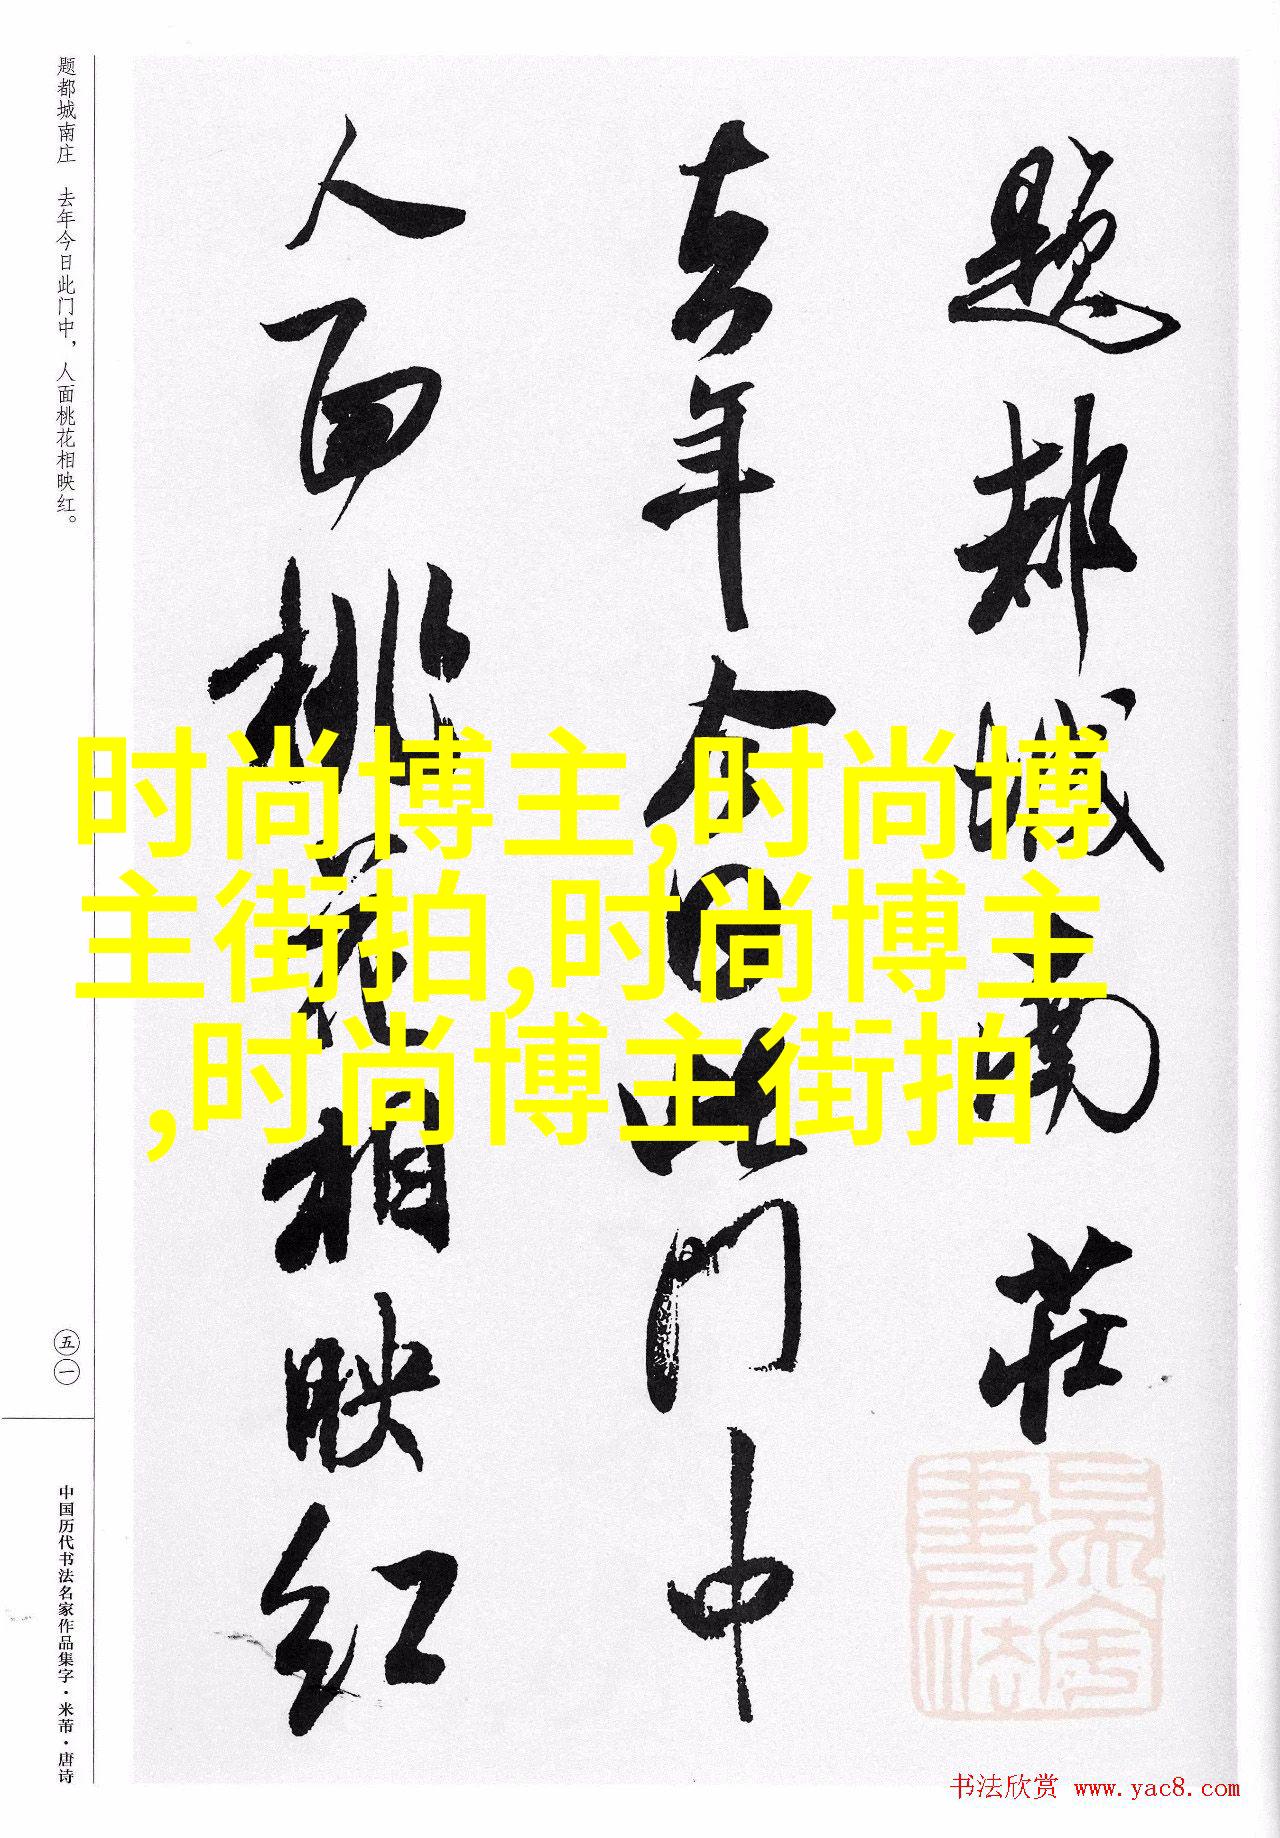 题都城南庄　去年今日此门中，人面桃花相映红。
题都城南莊
去年今日此门中
人面桃花相映红
时尚博主,时尚博
主街拍,时尚博主
,时尚博主街拍
五一
中国历代书法名家作品集字·米芾·唐诗
书法欣赏 www.yac8.com